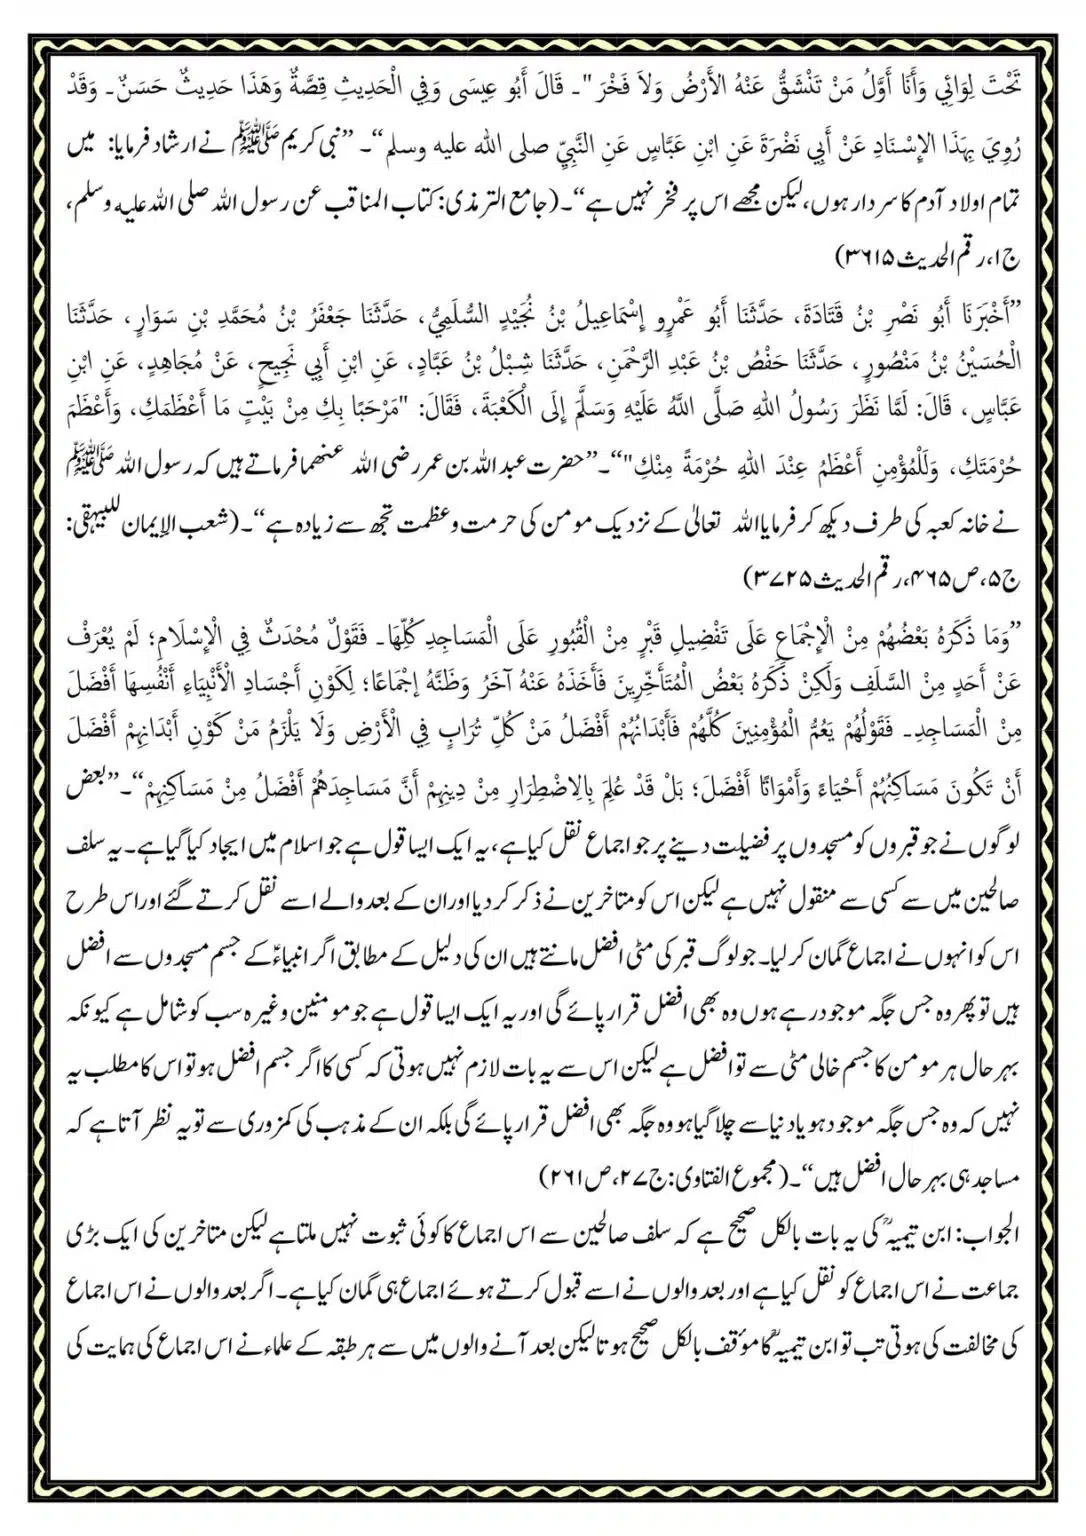 تَحْتَ لِوَائِي وَأَنَا أَوَّلُ مَنْ تَنْشَقُّ عَنْهُ الأَرْضُ وَلاَ فَخْرَ "۔ قَالَ أَبُو عِيسَى وَفِي الْحَدِيثِ قِصَّةٌ وَهَذَا حَدِيثٌ حَسَنٌ۔ وَقَدْ
رُوِيَ بِهَذَا الإِسْنَادِ عَنْ أَبِي نَضْرَةَ عَنِ ابْنِ عَبَّاسٍ عَنِ النَّبِيِّ صلى الله عليه وسلم“۔ ”نبی کریم ﷺ نے ارشاد فرمایا: میں
تمام اولاد آدم کا سردار ہوں، لیکن مجھے اس پر فخر نہیں ہے“۔ (جامع الترمذی: کتاب المناقب عن رسول اللہ صلی اللہ علیہ وسلم،
ج۱، رقم الحدیث ۳۶۱۵)
”أَخْبَرَنَا أَبُو نَصْرِ بْنُ قَتَادَةَ، حَدَّثَنَا أَبُو عَمْرٍو إِسْمَاعِيلُ بْنُ نُجَيْدٍ السُّلَمِيُّ، حَدَّثَنَا جَعْفَرُ بْنُ مُحَمَّدِ بْنِ سَوَارٍ، حَدَّثَنَا
الْحُسَيْنُ بْنُ مَنْصُورٍ، حَدَّثَنَا حَفْصُ بْنُ عَبْدِ الرَّحْمَنِ، حَدَّثَنَا شِبْلُ بْنُ عَبَّادٍ، عَنِ ابْنِ أَبِي نَجِيحٍ، عَنْ مُجَاهِدٍ، عَنِ ابْنِ
عَبَّاسٍ، قَالَ: لَمَّا نَظَرَ رَسُولُ اللهِ صَلَّى اللَّهُ عَلَيْهِ وَسَلَّمَ إِلَى الْكَعْبَةَ، فَقَالَ: "مَرْحَبًا بِكِ مِنْ بَيْتٍ مَا أَعْظَمَكِ، وَأَعْظَمَ
حُرْمَتَكِ، وَلَلْمُؤْمِنِ أَعْظَمُ عِنْدَ اللهِ حُرْمَةً مِنْكِ"“۔ ”حضرت عبد اللہ بن عمر رضی اللہ عنھما فرماتے ہیں کہ رسول اللہ ﷺ
نے خانہ کعبہ کی طرف دیکھ کر فرمایا اللہ تعالیٰ کے نزدیک مومن کی حرمت و عظمت تجھ سے زیادہ ہے“۔ (شعب الإيمان للبيهقی:
ج۵، ص۴۶۵، رقم الحدیث ۳۷۲۵)
”وَمَا ذَكَرَهُ بَعْضُهُمْ مِنْ الْإِجْمَاعِ عَلَى تَفْضِيلِ قَبْرٍ مِنْ الْقُبُورِ عَلَى الْمَسَاجِدِ كُلِّهَا۔ فَقَوْلٌ مُحْدَثٌ فِي الْإِسْلَامِ؛ لَمْ يُعْرَفْ
عَنْ أَحَدٍ مِنْ السَّلَفِ وَلَكِنْ ذَكَرَهُ بَعْضُ الْمُتَأَخِّرِينَ فَأَخَذَهُ عَنْهُ آخَرُ وَظَنَّهُ إجْمَاعًا؛ لِكَوْنِ أَجْسَادِ الْأَنْبِيَاءِ أَنْفُسِهَا أَفْضَلَ
مِنْ الْمَسَاجِدِ۔ فَقَوْلُهُمْ يَعُمُّ الْمُؤْمِنِينَ كُلَّهُمْ فَأَبْدَانُهُمْ أَفْضَلُ مَنْ كُلِّ تُرَابٍ فِي الْأَرْضِ وَلَا يَلْزَمُ مَنْ كَوْنِ أَبْدَانِهِمْ أَفْضَلَ
أَنْ تَكُونَ مَسَاكِنُهُمْ أَحْيَاءً وَأَمْوَاتًا أَفْضَلَ؛ بَلْ قَدْ عُلِمَ بِالِاضْطِرَارِ مِنْ دِينِهِمْ أَنَّ مَسَاجِدَهُمْ أَفْضَلُ مِنْ مَسَاكِنِهِمْ“۔ ”بعض
لوگوں نے جو قبروں کو مسجدوں پر فضیلت دینے پر جو اجماع نقل کیا ہے، یہ ایک ایسا قول ہے جو اسلام میں ایجاد کیا گیا ہے۔ یہ سلف
صالحین میں سے کسی سے منقول نہیں ہے لیکن اس کو متاخرین نے ذکر کر دیا اور ان کے بعد والے اسے نقل کرتے گئے اور اس طرح
اس کو انہوں نے اجماع گمان کر لیا۔ جو لوگ قبر کی مٹی افضل مانتے ہیں ان کی دلیل کے مطابق اگر انبیاءؑ کے جسم مسجدوں سے افضل
ہیں تو پھر وہ جس جگہ موجود رہے ہوں وہ بھی افضل قرار پائے گی اور یہ ایک ایسا قول ہے جو مومنین وغیرہ سب کو شامل ہے کیونکہ
بہر حال ہر مومن کا جسم خالی مٹی سے تو افضل ہے لیکن اس سے یہ بات لازم نہیں ہوتی کہ کسی کا اگر جسم افضل ہو تو اس کا مطلب یہ
نہیں کہ وہ جس جگہ موجود ہو یا دنیا سے چلا گیا ہو وہ جگہ بھی افضل قرار پائے گی بلکہ ان کے مذہب کی کمزوری سے تو یہ نظر آتا ہے کہ
مساجد ہی بہر حال افضل ہیں“۔ (مجموع الفتاوی: ج۲۷، ص۲۶۱)
الجواب: ابن تیمیہؒ کی یہ بات بالکل صحیح ہے کہ سلف صالحین سے اس اجماع کا کوئی ثبوت نہیں ملتا ہے لیکن متاخرین کی ایک بڑی
جماعت نے اس اجماع کو نقل کیا ہے اور بعد والوں نے اسے قبول کرتے ہوئے اجماع ہی گمان کیا ہے۔ اگر بعد والوں نے اس اجماع
کی مخالفت کی ہوتی تب تو ابن تیمیہؒ کا مؤقف بالکل صحیح ہوتا لیکن بعد آنے والوں میں سے ہر طبقہ کے علماء نے اس اجماع کی حمایت کی